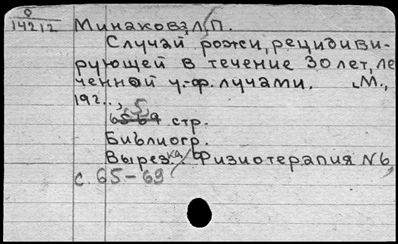 0
14212
Минаков, Л. П.
Случай рожи, рецидиви-
рующей в течение 30 лет, ле
ченной у.-ф. лучами. М.,
192..,
5
65-69 стр.
Библиогр.
Вырезка. Физиотерапия N6,
с. 65-69